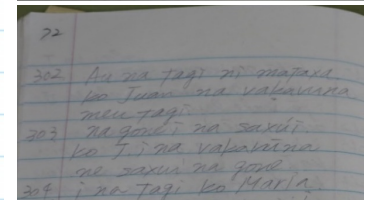 72
302 Au na tagi ni mataxa.
ko Juan na vakavuna
meu tagi.
303 na gone i na saxui.
ko T. i na vakavuna
ne saxui na gone
304 i na Tagi ko Maria.